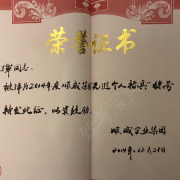 荣誉证书
军同志:
被评为2014年度顺威集团先进个人
称号
特发此证，以资鼓励。
顺威实业集团
2014年12月28日